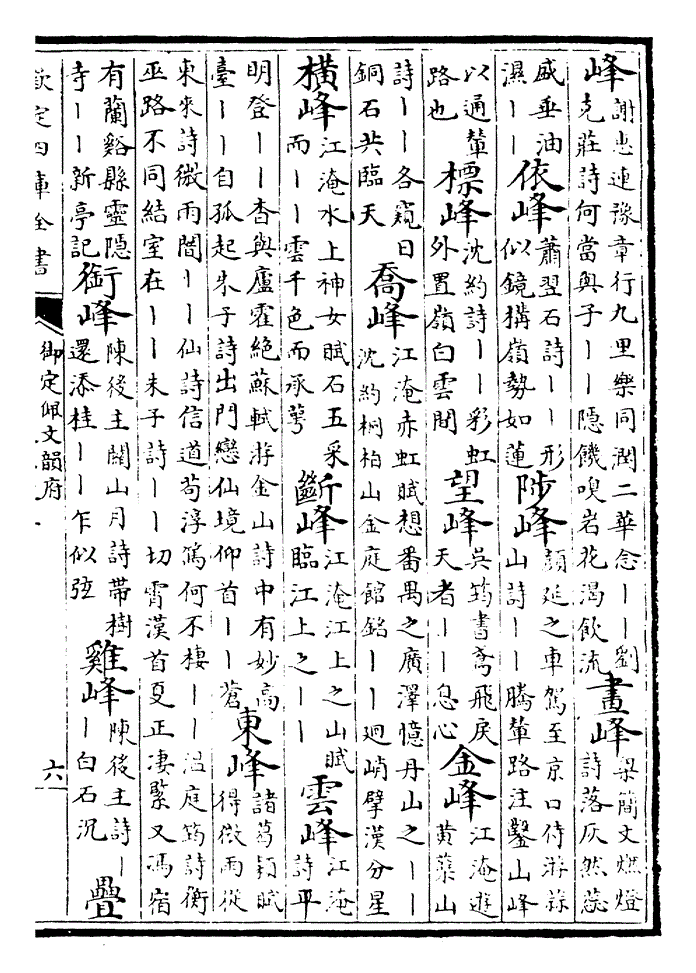 峰
謝惠連豫章行九里樂同潤二華念丨丨劉
克莊詩何當與子丨丨隱饑嗅岩花渴飲流
畫峰
梁簡文燃燈
詩落灰然蕊
盛垂油
濕丨丨
依峰
蕭翌石詩丨丨形
似鏡搆嶺勢如蓮
陟峰
顏延之車駕至京口侍游蒜
山詩丨丨騰輦路注鑿山峰
以通輦
路也
標峰
沈約詩丨丨彩虹
外置嶺白雲間
望峰
吳筠書鳶飛戾
天者丨丨息心
金峰
江淹遊
黃蘗山
詩丨丨各窺日
銅石共臨天
喬峰
江淹赤虹賦想番禺之廣澤憶丹山之丨丨
沈約桐柏山金庭館銘丨丨廻峭擘漢分星
橫峰
江淹水上神女賦石五采
而丨丨雲千色而承萼
斷峰
江淹江上之山賦
臨江上之丨丨
雲峰
江淹
詩平
明登丨丨杳與廬霍絕蘇軾游金山詩中有妙高
臺丨丨自孤起朱子詩出門戀仙境仰首丨丨蒼
東峰
諸葛穎賦
得微雨從
東來詩微雨闇丨丨仙詩信道苟淳篤何不棲丨丨溫庭筠詩衡
巫路不同結室在丨丨朱子詩丨丨切霄漢首夏正凄緊又馮宿
有蘭谿縣靈隱
寺丨丨新亭記
銜峰
陳後主關山月詩帶樹
還添桂丨丨乍似弦
雞峰
陳後主詩丨
丨白石沉
疊
欽定四庫全書
御定佩文韻府
六